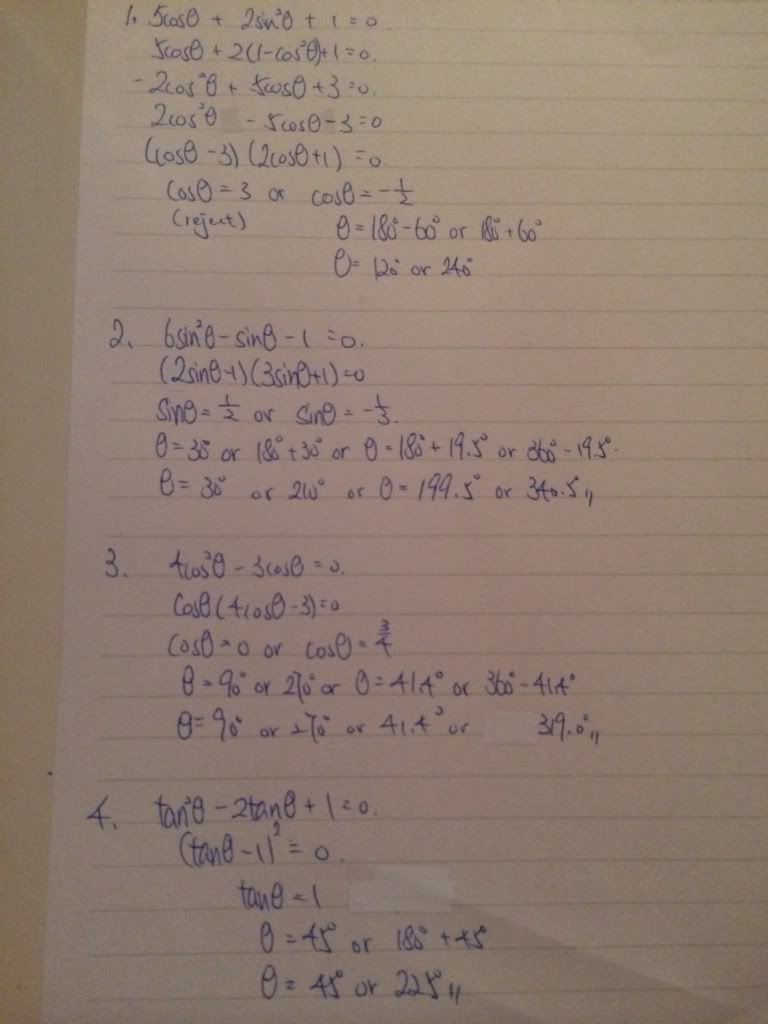 1. 5cosθ + 2sin²θ + 1 = 0
5cosθ + 2(1-cos²θ)+1=0.
-2cos²θ + 5cosθ+3=0.
2cos²θ - 5cosθ-3=0
(cosθ-3)(2cosθ+1)=0
cosθ=3 or cosθ=-1/2
(reject) θ=180°-60° or 180°+60°
θ= 120° or 240°
2. 6sin²θ-sinθ-1=0.
(2sinθ-1)(3sinθ+1)=0
sinθ=1/2 or sinθ=-1/3.
θ=30° or 180°+30° or θ=180°+19.5° or 360°-19.5°.
θ=30° or 210° or θ=199.5° or 340.5°,,
3. 4cos²θ-3cosθ=0.
cosθ(4cosθ-3)=0
cosθ=0 or cosθ=3/4
θ=90° or 270° or θ=41.4° or 360°-41.4°
θ=90° or 270° or 41.4° or 319.0°,,
4. tan²θ-2tanθ+1=0.
(tanθ-1)²=0.
tanθ=1
θ=45° or 180°+45°
θ=45° or 225°,,